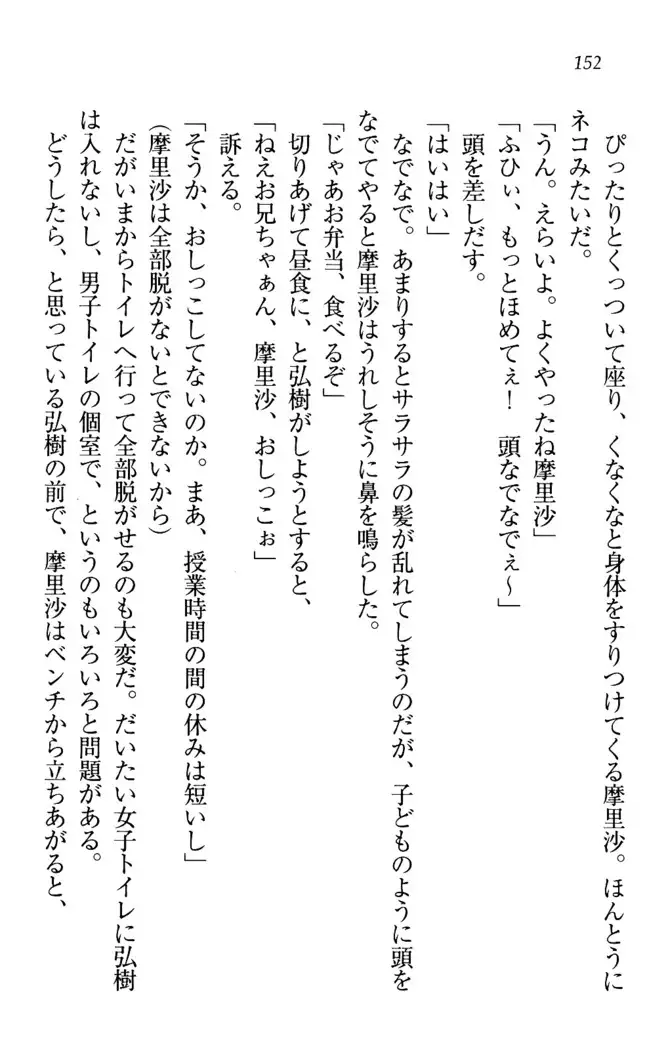 152
ぴったりとくっついて座り、くなくなと身体をすりつけてくる摩里沙。ほんとうに
ネコみたいだ。
「うん。えらいよ。よくやったね摩里沙」
「ふひぃ、もっとほめてぇ！　頭なでなでぇ～」
頭を差しだす。
「はいはい」
なでなで。あまりするとサラサラの髪が乱れてしまうのだが、子どものように頭を
なでてやると摩里沙はうれしそうに鼻を鳴らした。
「じゃあお弁当、食べるぞ」
切りあげて昼食に、と弘樹がしようとすると、
「ねえお兄ちゃぁん、摩里沙、おしっこぉ」
訴える。
「そうか、おしっこしてないのか。まあ、授業時間の間の休みは短いし」
（摩里沙は全部脱がないとできないから）
だがいまからトイレへ行って全部脱がせるのも大変だ。だいたい女子トイレに弘樹
は入れないし、男子トイレの個室で、というのもいろいろと問題がある。
どうしたら、と思っている弘樹の前で、摩里沙はベンチから立ちあがると、